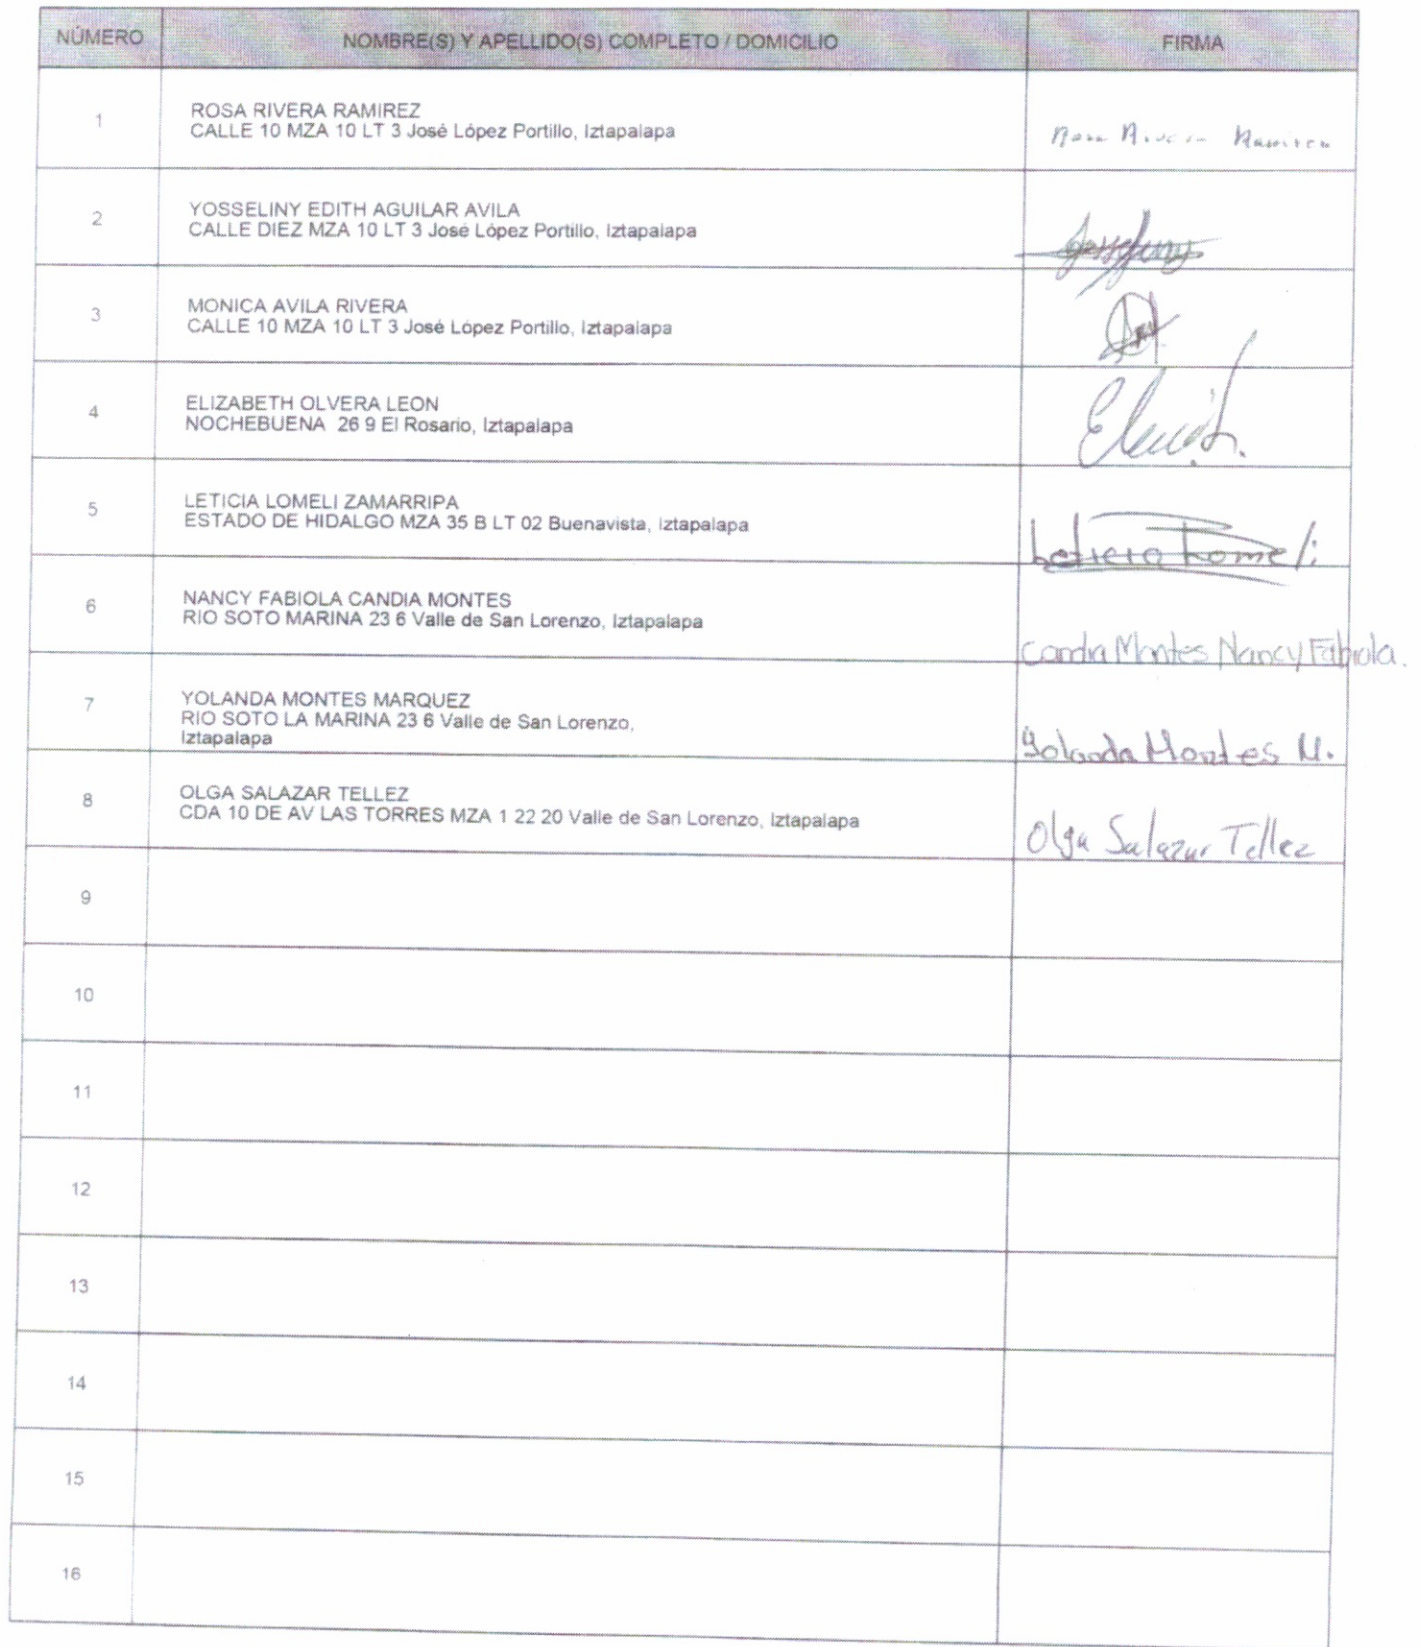 NÚMERO NOMBRE(S) Y APELLIDO(S) COMPLETO / DOMICILIO FIRMA
1 ROSA RIVERA RAMIREZ
CALLE 10 MZA 10 LT 3 José López Portillo, Iztapalapa
Rosa Rivera Ramirez
2 YOSSELINY EDITH AGUILAR AVILA
CALLE DIEZ MZA 10 LT 3 José López Portillo, Iztapalapa
3 MONICA AVILA RIVERA
CALLE 10 MZA 10 LT 3 José López Portillo, Iztapalapa
4 ELIZABETH OLVERA LEON
NOCHEBUENA 26 9 El Rosario, Iztapalapa
5 LETICIA LOMELI ZAMARRIPA
ESTADO DE HIDALGO MZA 35 B LT 02 Buenavista, Iztapalapa
Leticia Lomeli
6 NANCY FABIOLA CANDIA MONTES
RIO SOTO MARINA 23 6 Valle de San Lorenzo, Iztapalapa
Candia Montes Nancy Fabiola.
7 YOLANDA MONTES MARQUEZ
RIO SOTO LA MARINA 23 6 Valle de San Lorenzo,
Iztapalapa
Yolanda Montes M.
8 OLGA SALAZAR TELLEZ
CDA 10 DE AV LAS TORRES MZA 1 22 20 Valle de San Lorenzo, Iztapalapa
Olga Salazar Tellez
9
10
11
12
13
14
15
16